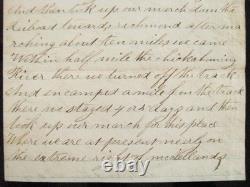 And then took up our march down the
railroad towards richmond after ma
rching about ten miles we came
Within half mile the chickahominy
River there we turned off the track
And encamped a mile from the track
there we stayed 4 or 5 days and then
took up our march for this place
Where we are at present nearly on
the extreme right of mcclellands